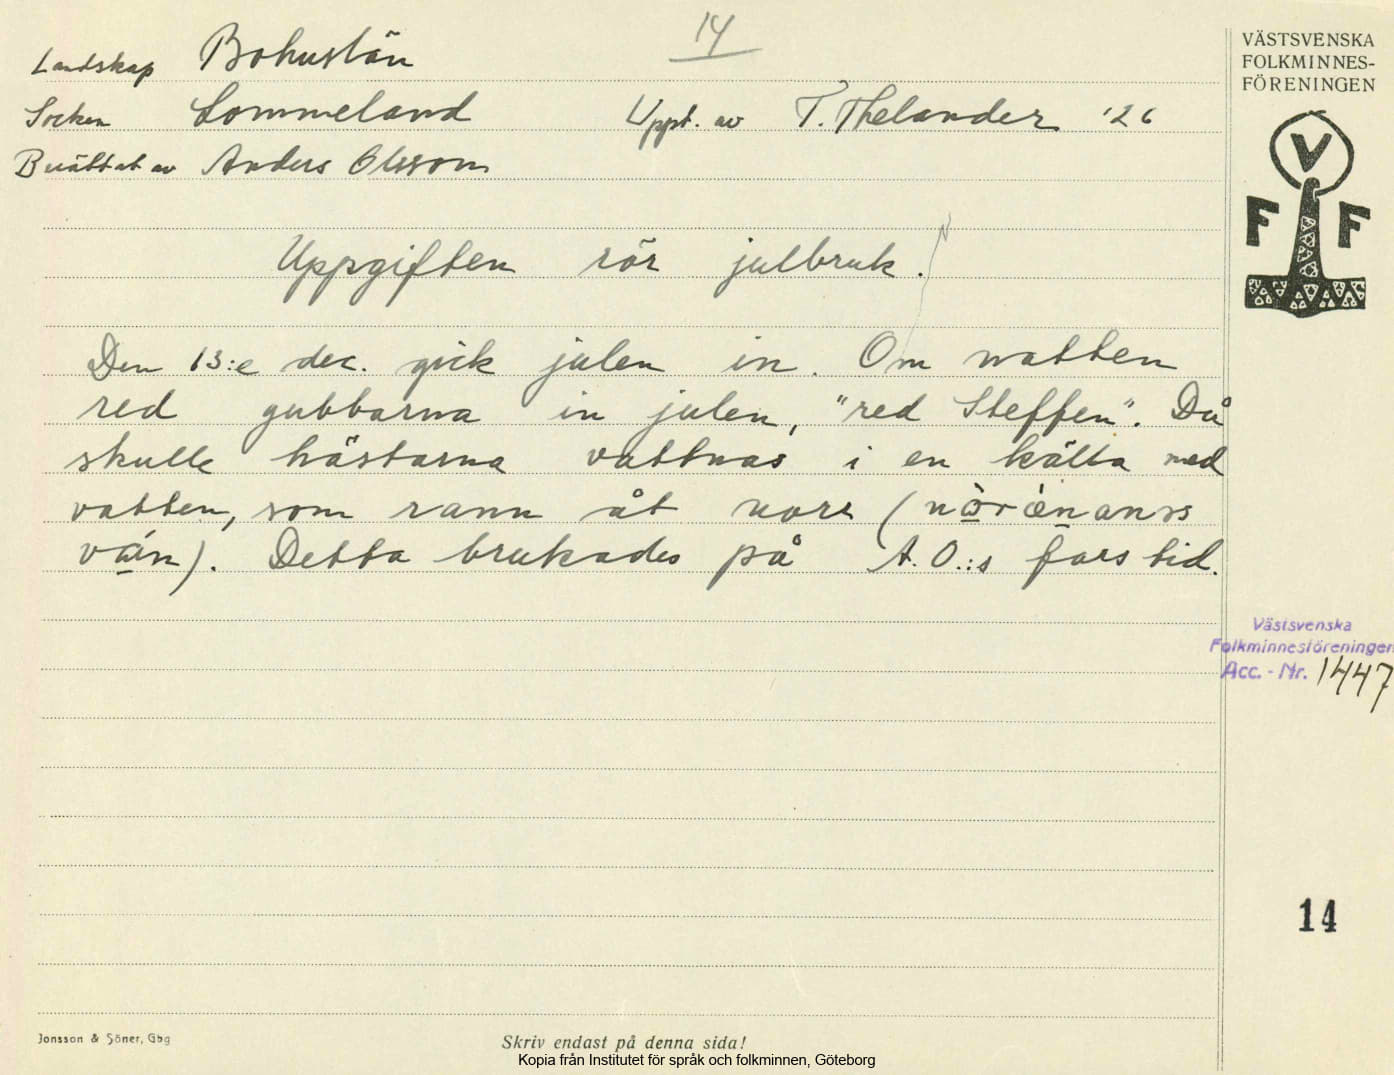 14
Landskap Bohuslän
Socken Lommeland Uppt. av T. Thelander '26
Berättat av Anders Olsson
Uppgiften rör julbruk.
Den 13:e dec. gick julen in. Om natten
red gubbarna in julen, "red Steffen". Då
skulle hästarna vattnas i en källa med
vatten, som rann åt norr (
). Detta brukades på A. O.:s fars tid.
VÄSTSVENSKA
FOLKMINNES-
FÖRENINGEN
V
F F
Västsvenska
Folkminnesföreningen
Acc. - Nr. 1447
14
Jonsson & Söner, Gbg
Skriv endast på denna sida!
Kopia från Institutet för språk och folkminnen, Göteborg